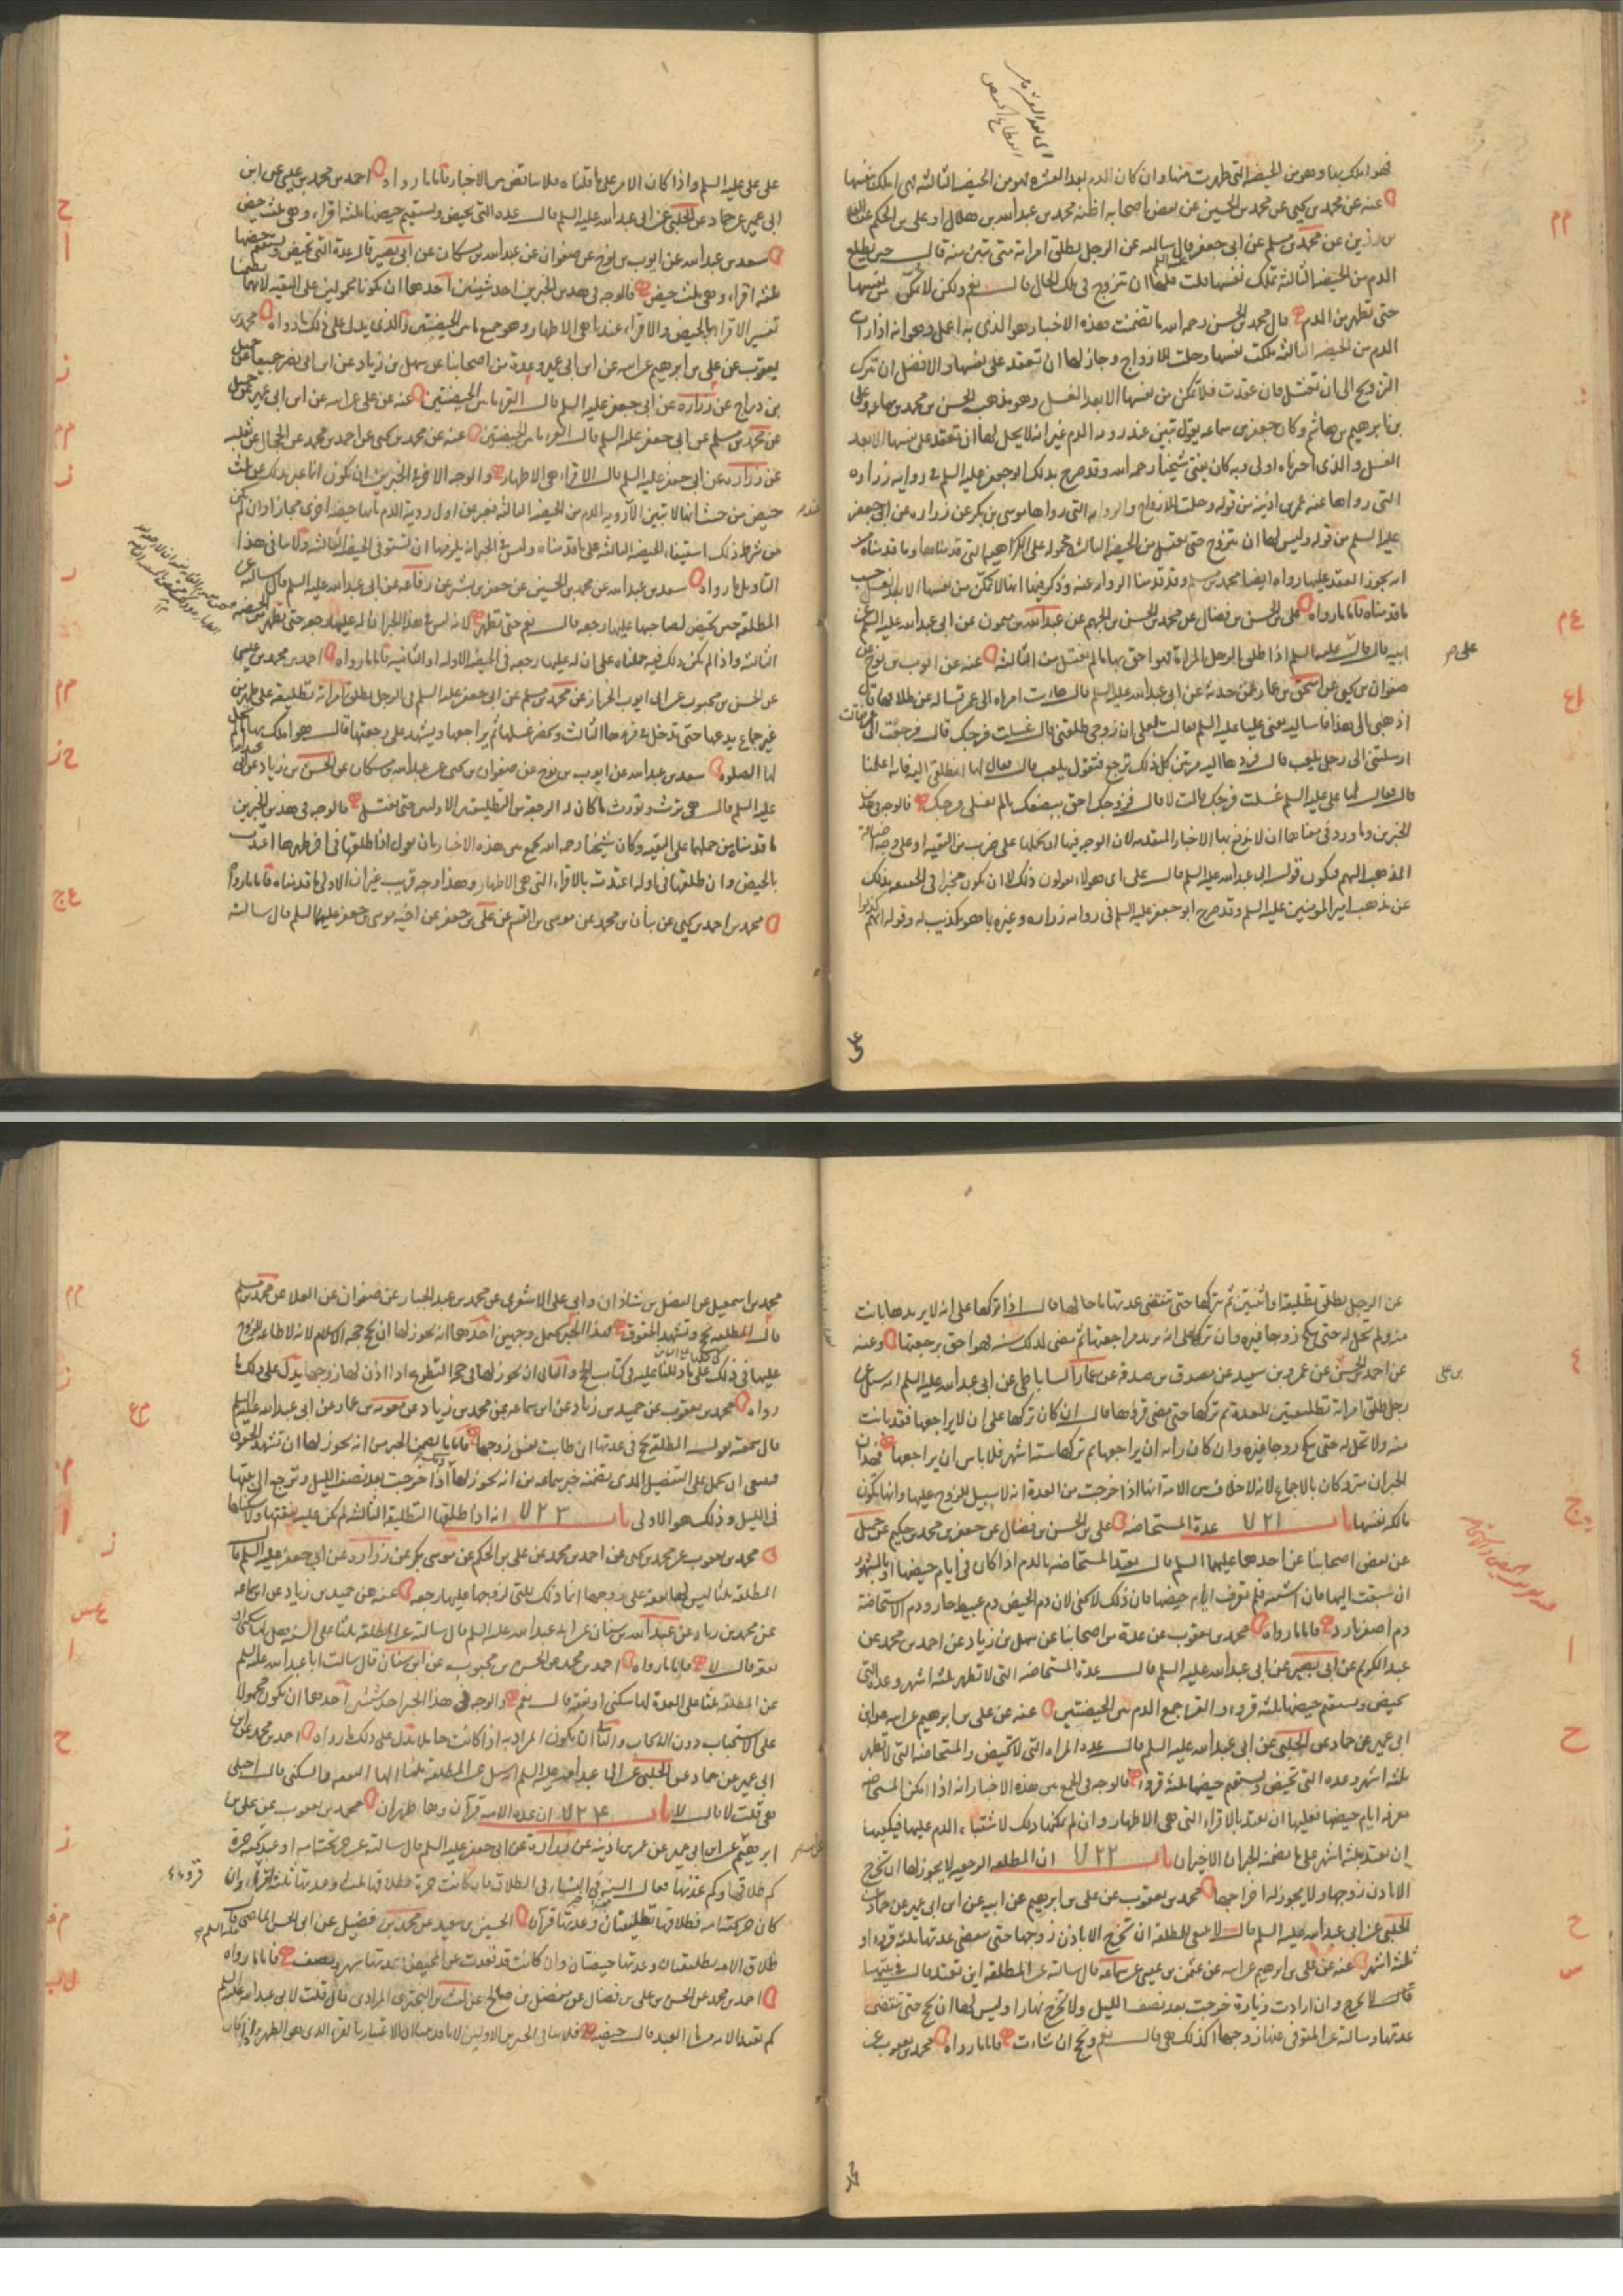 فهو املك بها وهو من الحيضة التي طهرت منها وان كان الدم بعد العشرة فهو من الحيضة الثالثة فهي املك بنفسها
عنه عن محمد بن يحيى عن محمد بن الحسين عن بعض اصحابه اظنه محمد بن عبدالله بن هلال او علي بن الحكم عن العلا
بن رزين عن محمد بن مسلم عن ابي جعفر قال سالته عن الرجل يطلق امراته متى تبين منه قال حين يطلع
الدم من الحيضة الثالثة تملك نفسها قلت فلها ان تتزوج في تلك الحال قال نعم ولكن لا تمكن من نفسها
حتى تطهر من الدم قال محمد بن الحسن رحمه الله ما تضمنت هذه الاخبار هو الذي به اعمل وهو انه اذا رات
الدم من الحيضة الثالثة ملكت نفسها وحلت للازواج وجاز لها ان تعقد على نفسها والافضل ان تترك
التزويج الى ان تغتسل فان عقدت فلا تمكن من نفسها الا بعد الغسل وهو مذهب الحسن بن محمد بن سماعة وعلي
بن ابرهيم بن هاشم وكان جعفر بن سماعة يقول تبين عند رؤية الدم غير انه لا يحل لها ان تعقد على نفسها الا بعد
الغسل والذي اخترناه اولى وبه كان يفتي شيخنا رحمه الله وقد صرح بذلك ابو جعفر عليه السلم في رواية زرارة
التي رواها عنه عمر بن اذينة من قوله وحلت للازواج والرواية التي رواها موسى بن بكر عن زرارة عن ابي جعفر
عليه السلم من قوله وليس لها ان تتزوج حتى تغتسل من الحيضة الثالثة محمولة على الكراهية التي قدمناها وما قدمناه من
انه يجوز العقد عليها رواه ايضا محمد بن مسلم وقد قدمنا الرواية عنه وذكر فيها انها لا تمكن من نفسها الا بعد الغسل حسب
ما قدمناه فاما ما رواه علي بن الحسن بن فضال عن محمد بن الحسن بن الجهم عن عبدالله بن ميمون عن ابي عبدالله عليه السلم عن
ابيه قال قال علي عليه السلم اذا طلق الرجل المراة فهو احق بها ما لم تغتسل من الثالثة عنه عن ايوب بن نوح عن
صفوان بن يحيى عن اسحق بن عمار عمن حدثه عن ابي عبدالله عليه السلم قال جاءت امراة الى عمر تساله عن طلاقها قال
اذهبي الى هذا فاساليه يعني عليا عليه السلم فقالت لعلي ان زوجي طلقني قال غسلت فرجك قال فرجعت الى عمر فقالت
ارسلتني الى رجل يلعب قال فردها اليه مرتين كل ذلك ترجع فتقول يلعب قال فقال لها انطلقي اليه فانه اعلمنا
قال فقال لها علي عليه السلم غسلت فرجك قالت لا قال فزوجك احق ببضعك ما لم تغسلي فرجك فالوجه في هذين
الخبرين وما ورد في معناهما ان لا نترك بها الاخبار المتقدمة لان الوجه فيها ان نحملها على ضرب من التقية او على وجه اضافة
المذهب اليهم فيكون قول ابي عبدالله عليه السلم قال علي اي هولاء يقولون ذلك لا ان يكون مخبرا في الحقيقة بذلك
عن مذهب امير المؤمنين عليه السلم وقد صرح ابو جعفر عليه السلم في رواية زرارة وغيره بما هو تكذيب له وقوله انهم كذبوا
على علي عليه السلم واذا كان الامر على ما قلناه فلا تناقض بين الاخبار فاما ما رواه احمد بن محمد بن عيسى عن ابن
ابي عمير عن حماد عن الحلبي عن ابي عبدالله عليه السلم قال عدة التي تحيض ويستقيم حيضها ثلثة اقراء وهي ثلث حيض
سعد بن عبدالله عن ايوب بن نوح عن صفوان عن عبدالله بن مسكان عن ابي بصير قال عدة التي تحيض ويستقيم حيضها
ثلثة اقراء وهي ثلث حيض فالوجه في هذين الخبرين احد شيئين احدهما ان يكونا محمولين على التقية لانهما تضمنا
تفسير الاقراء بالحيض والاقراء عندنا هي الاطهار وهو جمع ما بين الحيضتين والذي يدل على ذلك ما رواه محمد بن
يعقوب عن علي بن ابرهيم عن ابيه عن ابن ابي عمير وعدة من اصحابنا عن سهل بن زياد عن ابن ابي نصر جميعا عن جميل
بن دراج عن زرارة عن ابي جعفر عليه السلم قال القرء ما بين الحيضتين عنه عن علي عن ابيه عن ابن ابي عمير عن جميل
عن محمد بن مسلم عن ابي جعفر عليه السلم قال القرء ما بين الحيضتين عنه عن محمد بن يحيى عن احمد بن محمد عن الحجال عن ثعلبة
عن زرارة عن ابي جعفر عليه السلم قال الاقراء هي الاطهار والوجه الاخر في الخبرين ان يكون انما عبر بذلك عن ثلث
حيض من حيث انها لا تبين الا برؤية الدم من الحيضة الثالثة فعبر عن اول رؤية الدم بانها حيضة اخرى مجازا وان لم يكن
من شرط ذلك استيفاء الحيضة الثالثة على ما قدمناه وليس في الخبر انه يلزمها ان تستوفي الحيضة الثالثة ولا ينافي هذا
التاويل ما رواه سعد بن عبدالله عن محمد بن الحسين عن جعفر بن بشير عن رفاعة عن ابي عبدالله عليه السلم قال سالته عن
المطلقة حين تحيض لصاحبها عليها رجعة قال نعم حتى تطهر لانه ليس في هذا الخبر ان له عليها رجعة حتى تطهر من الحيضة
الثالثة واذا لم يكن ذلك فيه حملناه على ان له عليها رجعة في الحيضة الاولة او الثانية فاما ما رواه احمد بن محمد بن عيسى
عن الحسن بن محبوب عن ابي ايوب الخزاز عن محمد بن مسلم عن ابي جعفر عليه السلم في الرجل يطلق امراته تطليقة على طهر من
غير جماع يدعها حتى تدخل في قرءها الثالث وتحضر غسلها ثم يراجعها ويشهد على رجعتها قال هو املك بها ما لم تحل
لها الصلوة سعد بن عبدالله عن ايوب بن نوح عن صفوان بن يحيى عن عبدالله بن مسكان عن الحسن بن زياد عن ابي عبدالله
عليه السلم قال هي ترث وتورث ما كان له الرجعة من التطليقتين الاولتين حتى تغتسل فالوجه في هذين الخبرين
ما قدمناه من حملهما على التقية وكان شيخنا رحمه الله يجمع بين هذه الاخبار بان يقول اذا طلقها في اخر طهرها اعتدت
بالحيض وان طلقها في اوله اعتدت بالاقراء التي هي الاطهار وهذا وجه قريب غير ان الاولى ما قدمناه فاما ما رواه
محمد بن احمد بن يحيى عن بنان بن محمد عن موسى بن القسم عن علي بن جعفر عن اخيه موسى بن جعفر عليهما السلم قال سالته
عن الرجل يطلق تطليقة او اثنتين ثم يتركها حتى تنقضي عدتها ما حالها قال اذا تركها على انه لا يريدها بانت
منه ولم تحل له حتى تنكح زوجا غيره وان تركها على انه يريد مراجعتها ثم مضى لذلك سنة فهو احق برجعتها وعنه
عن احمد بن الحسن عن عمرو بن سعيد عن مصدق بن صدقة عن عمار الساباطي عن ابي عبدالله عليه السلم انه سئل عن
رجل طلق امراته تطليقتين للعدة ثم تركها حتى مضى قرؤها قال ان كان تركها على ان لا يراجعها فقد بانت
منه ولا تحل له حتى تنكح زوجا غيره وان كان رايه ان يراجعها ثم تركها ستة اشهر فلا باس ان يراجعها فهذان
الخبران متروكان بالاجماع لانه لا خلاف بين الامة انها اذا خرجت من العدة انه لا سبيل للزوج عليها وانها تكون
مالكة نفسها باب ٧٢١ عدة المستحاضة علي بن الحسن بن فضال عن جعفر بن محمد بن حكيم عن جميل
عن بعض اصحابنا عن احدهما عليهما السلم قال تعتد المستحاضة بالدم اذا كان في ايام حيضها او بالشهور
ان سبقت اليها فان اشتبه فلم تعرف ايام حيضها فان ذلك لا يخفى لان دم الحيض دم عبيط حار ودم الاستحاضة
دم اصفر بارد فاما ما رواه محمد بن يعقوب عن عدة من اصحابنا عن سهل بن زياد عن احمد بن محمد عن
عبد الكريم عن ابي بصير عن ابي عبدالله عليه السلم قال عدة المستحاضة التي لا تطهر ثلثة اشهر وعدة التي
تحيض ويستقيم حيضها ثلثة قروء والقرء جمع الدم بين الحيضتين عنه عن علي بن ابرهيم عن ابيه عن ابن
ابي عمير عن حماد عن الحلبي عن ابي عبدالله عليه السلم قال عدة المراة التي لا تحيض والمستحاضة التي لا تطهر
ثلثة اشهر وعدة التي تحيض ويستقيم حيضها ثلثة قروء فالوجه في الجمع بين هذه الاخبار انه اذا امكن المستحاضة
معرفة ايام حيضها فعليها ان تعتد بالاقراء التي هي الاطهار وان لم يمكنها ذلك لاشتباه الدم عليها فيكفيها
ان تعتد بثلثة اشهر على ما تضمنه الخبران الاخيران باب ٧٢٢ ان المطلقة الرجعية لا يجوز لها ان تخرج
الا باذن زوجها ولا يجوز له اخراجها محمد بن يعقوب عن علي بن ابرهيم عن ابيه عن ابن ابي عمير عن حماد عن
الحلبي عن ابي عبدالله عليه السلم قال لا ينبغي للمطلقة ان تخرج الا باذن زوجها حتى تنقضي عدتها ثلثة قروء او
ثلثة اشهر عنه عن علي بن ابرهيم عن ابيه عن عثمن بن عيسى عن سماعة قال سالته عن المطلقة اين تعتد قال في بيتها
لا تخرج وان ارادت زيارة خرجت بعد نصف الليل ولا تخرج نهارا وليس لها ان تحج حتى تنقضي
عدتها وسالته عن المتوفى عنها زوجها كذلك هي قال نعم وتحج ان شاءت فاما ما رواه محمد بن يعقوب عن
محمد بن اسمعيل عن الفضل بن شاذان وابي علي الاشعري عن محمد بن عبد الجبار عن صفوان عن العلا عن محمد بن مسلم
قال المطلقة تحج وتشهد الحقوق فهذا الخبر يحتمل وجهين احدهما انه يجوز لها ان تحج حجة الاسلام لانه لا طاعة للزوج
عليها في ذلك على ما دللنا عليه في كتاب الحج والثاني ان يجوز لها في حج التطوع اذا اذن لها زوجها يدل على ذلك ما
رواه محمد بن يعقوب عن حميد بن زياد عن ابن سماعة عن محمد بن زياد عن معوية بن عمار عن ابي عبدالله عليه السلم
قال سمعته يقول المطلقة تحج في عدتها ان طابت نفس زوجها فاما ما تضمن الخبر من انه يجوز لها ان تشهد الحقوق
فينبغي ان يحمل على التفصيل الذي تضمنه خبر سماعة من انه يجوز لها اذا خرجت بعد نصف الليل وترجع الى بيتها
في الليل وذلك هو الاولى باب ٧٢٣ انه اذا طلقها التطليقة الثالثة لم يكن عليه نفقتها ولا سكناها
محمد بن يعقوب عن محمد بن يحيى عن احمد بن محمد عن علي بن الحكم عن موسى بن بكر عن زرارة عن ابي جعفر عليه السلم قال
المطلقة ثلثا ليس لها نفقة على زوجها انما ذلك للتي لزوجها عليها رجعة عنه عن حميد بن زياد عن ابن سماعة
عن محمد بن زياد عن عبدالله بن سنان عن ابي عبدالله عليه السلم قال سالته عن المطلقة ثلثا على السنة هل لها سكنى او
نفقة قال لا فاما ما رواه احمد بن محمد عن الحسن بن محبوب عن ابن سنان قال سالت ابا عبدالله عليه السلم
عن المطلقة ثلثا على العدة لها سكنى او نفقة قال نعم فالوجه في هذا الخبر احد شيئين احدهما ان يكون محمولا
على الاستحباب دون الايجاب والثاني ان يكون المراد به اذا كانت حاملا يدل على ذلك ما رواه احمد بن محمد عن ابن
ابي عمير عن حماد عن الحلبي عن ابي عبدالله عليه السلم انه سئل عن المطلقة ثلثا الها النفقة والسكنى قال احبلى
هي قلت لا قال لا باب ٧٢٤ ان عدة الامة قرآن وهما طهران محمد بن يعقوب عن علي بن
ابرهيم عن ابيه عن ابن ابي عمير عن عمر بن اذينة عن زرارة عن ابي جعفر عليه السلم قال سالته عن حر تحته امة او عبد تحته حرة
كم طلاقها وكم عدتها فقال السنة في النساء في الطلاق فان كانت حرة فطلاقها ثلثا وعدتها ثلثة اقراء وان
كان حر تحته امة فطلاقها تطليقتان وعدتها قرآن الحسين بن سعيد عن محمد بن فضيل عن ابي الحسن الماضي عليه السلم قال
طلاق الامة تطليقتان وعدتها حيضتان وان كانت قد قعدت عن المحيض فعدتها شهر ونصف فاما ما رواه
احمد بن محمد عن الحسن بن علي بن فضال عن مفضل بن صالح عن ليث بن البختري المرادي قال قلت لابي عبدالله عليه السلم
كم تعتد الامة من ماء العبد قال حيضة فلا ينافي الخبرين الاولين لانا قد بينا ان الاعتبار بالقرء الذي هو الطهر واذا كان